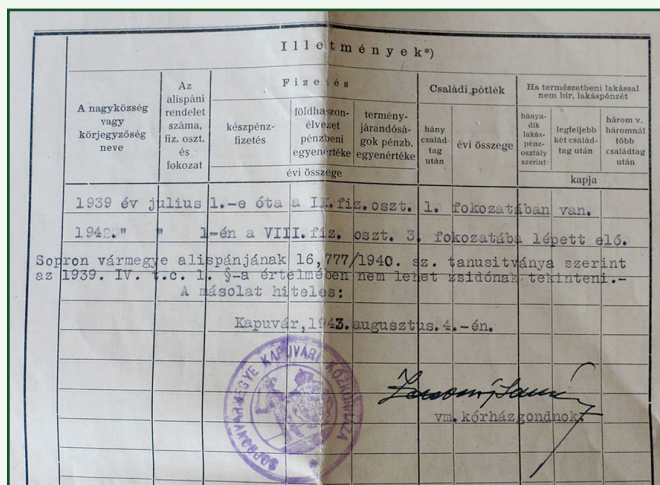 Illetmények*)
A nagyközség vagy körjegyzőség neve
Az alispáni rendelet száma, fiz. oszt. és fokozat
Fizetés
készpénz-fizetés
földhaszon-élvezet pénzbeni egyenértéke
termény-járandósá-gok pénzb. egyenértéke
évi összege
Családi pótlék
hány család-tag után
évi összege
Ha természetbeni lakással nem bír, lakáspénzét
hánya-dik lakás-pénz-osztály szerint
legfeljebb két család-tag után
három v. háromnál több családtag után
kapja
1939 év július 1.-e óta a IX.fiz.oszt. 1. fokozatában van.
1942." " 1-én a VIII.fiz. oszt. 3. fokozatába lépett elő.
Sopron vármegye alispánjának 16,777/1940. sz. tanusitványa szerint
az 1939. IV. t.c. 1. §-a értelmében nem lehet zsidónak tekinteni.-
A másolat hiteles:
Kapuvár,1943.augusztus.4.-én.
SOPRONVÁRMEGYE KAPUVÁRI KÖZKÓRHÁZA
vm.kórházgondnok.